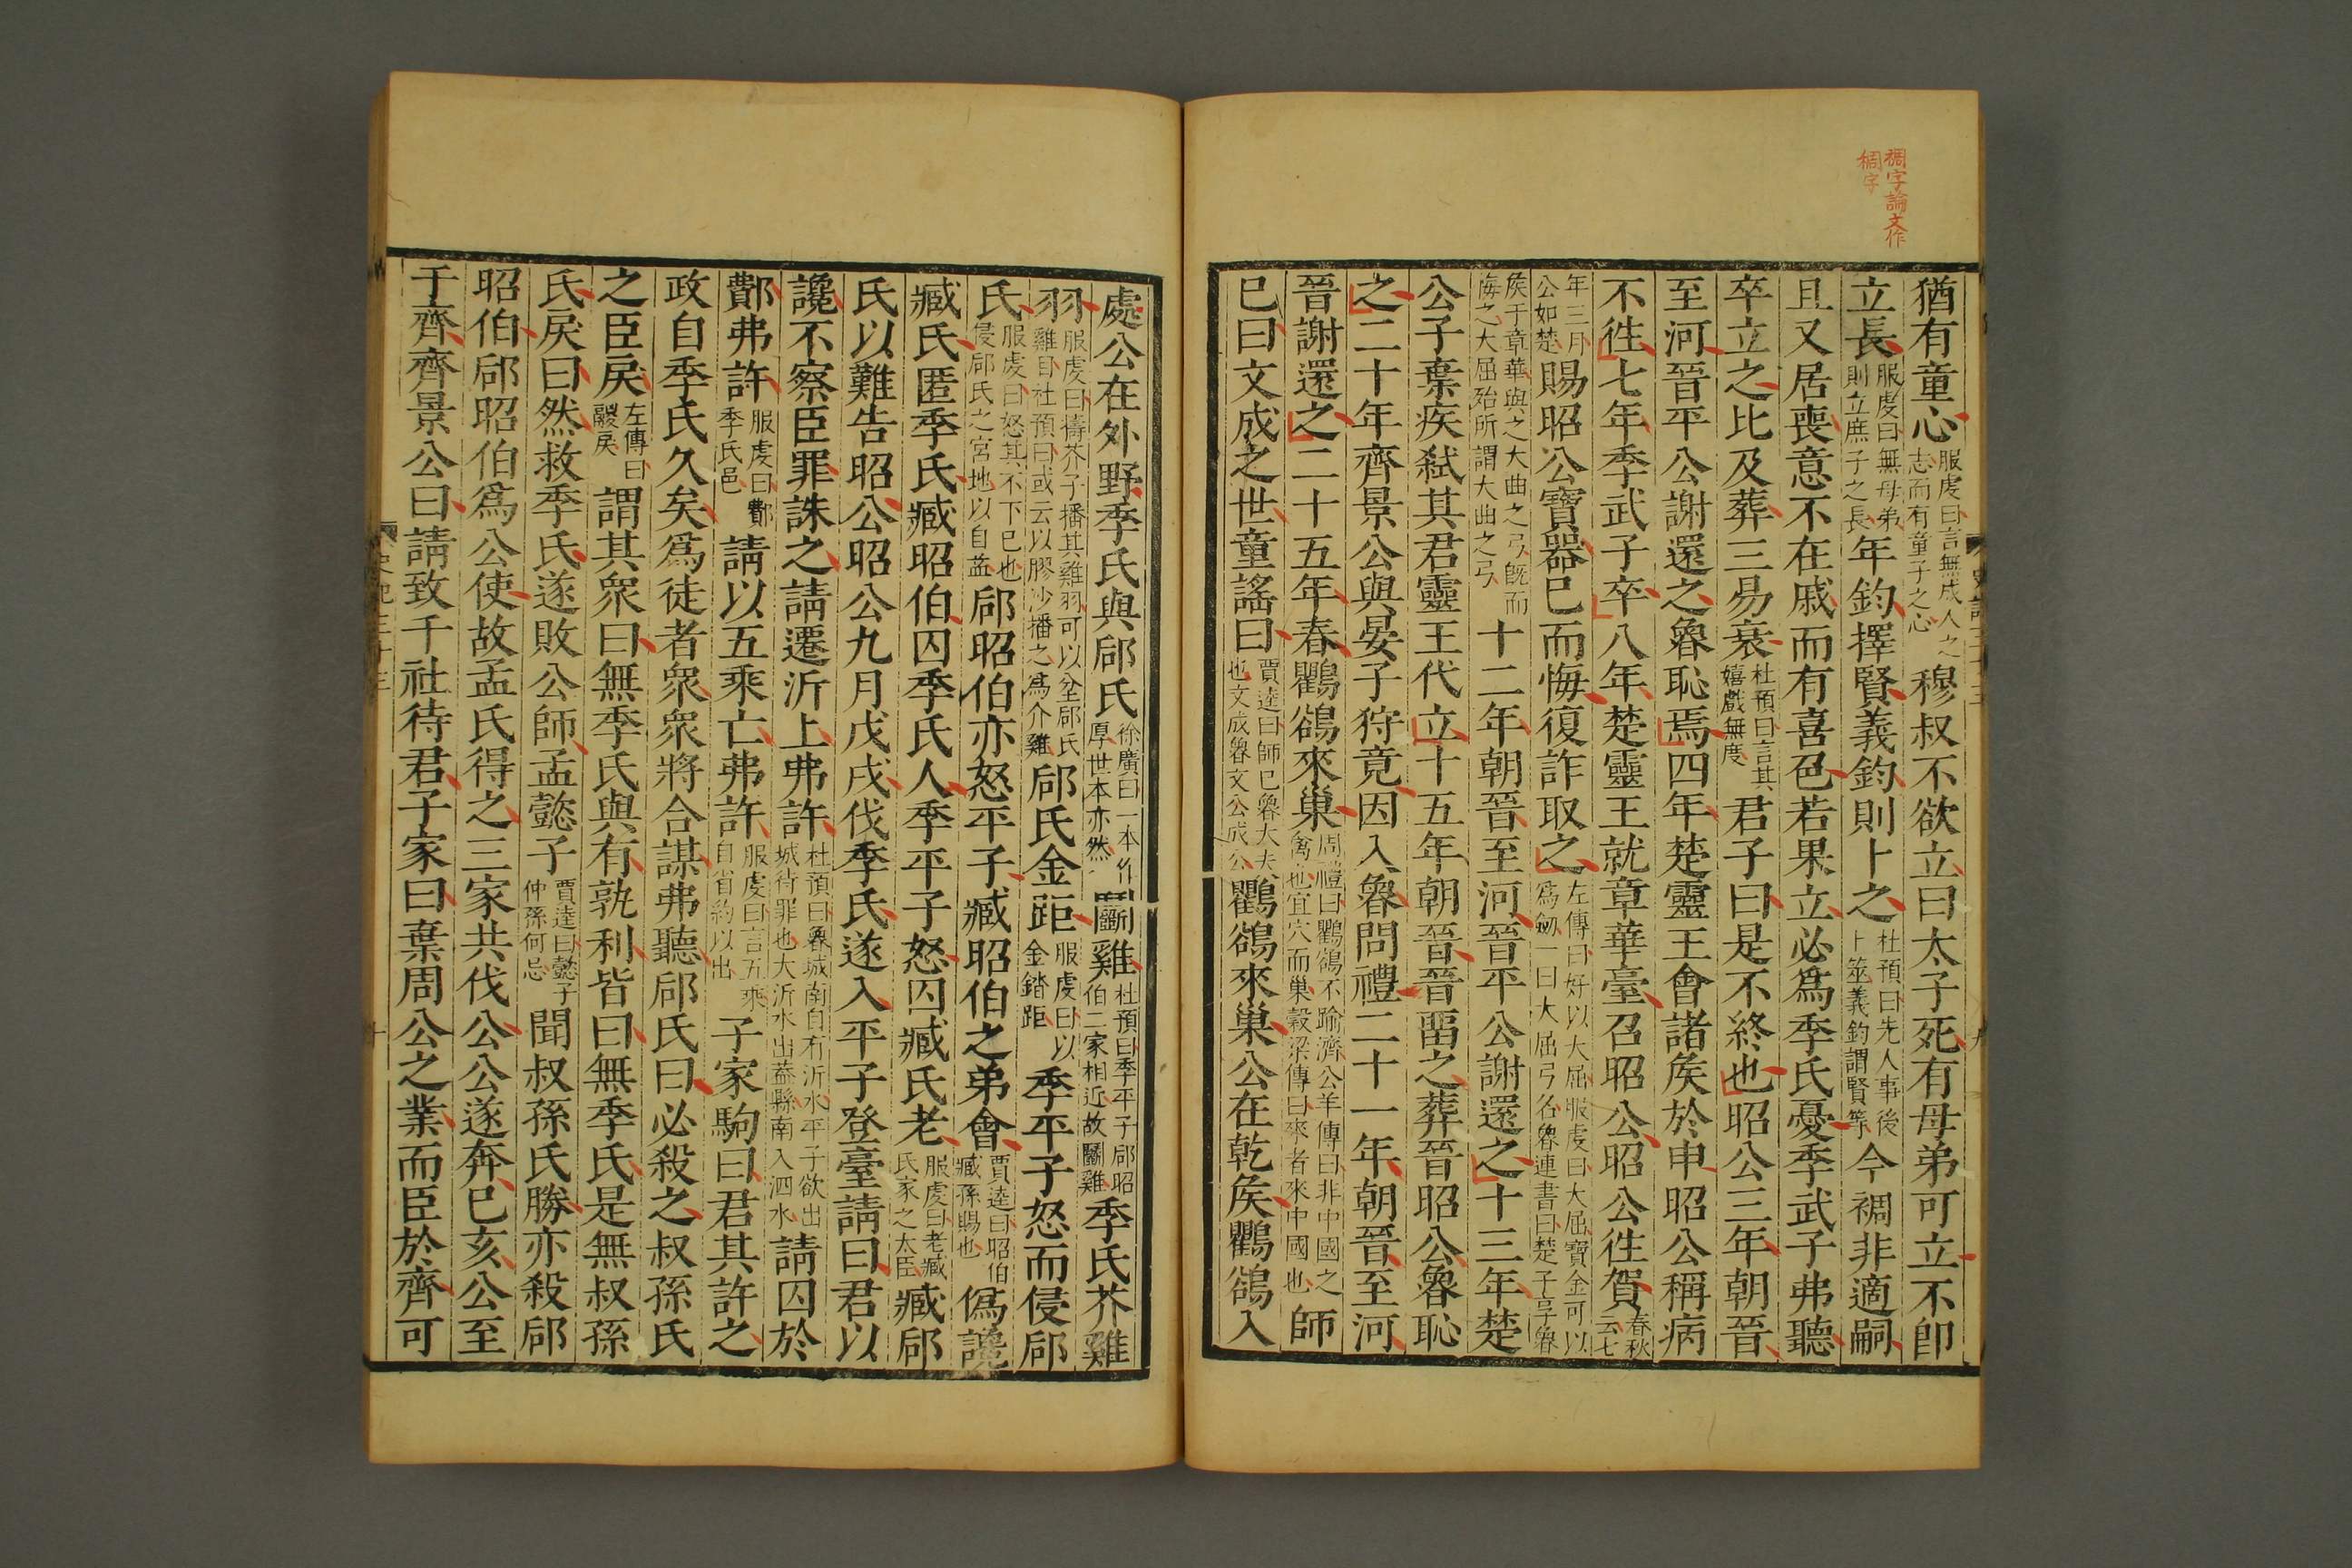 裯字論文作
稠字
猶有童心服虔曰言無成人之志而有童子之心穆叔不欲立曰太子死有母弟可立不即
立長服虔曰無母弟則立庶子之長年鈞擇賢義鈞則卜之杜預曰先人事後卜筮義鈞謂賢等今裯非適嗣
且又居喪意不在戚而有喜色若果立必爲季氏憂季武子弗聽
卒立之比及葬三易衰杜預曰言其嬉戲無度君子曰是不終也昭公三年朝晉
至河晉平公謝還之魯恥焉四年楚靈王會諸侯於申昭公稱病
不徃七年季武子卒八年楚靈王就章華臺召昭公昭公徃賀春秋云七
年三月公如楚賜昭公寶器巳而悔復詐取之左傳曰好以大屈服虔曰大屈寶金可以爲劒一曰大屈弓名魯連書曰楚子享魯
侯于章華與之大曲之弓旣而悔之大屈殆所謂大曲之弓十二年朝晉至河晉平公謝還之十三年楚
公子棄疾弑其君靈王代立十五年朝晉晉畱之葬晉昭公魯恥
之二十年齊景公與晏子狩竟因入魯問禮二十一年朝晉至河
晉謝還之二十五年春鸜鵒來巢周禮曰鸜鵒不踰濟公羊傳曰非中國之禽也宜穴而巢穀梁傳曰來者來中國也師
巳曰文成之世童謠曰賈逵曰師巳魯大夫也文成魯文公成公鸜鵒來巢公在乾侯鸜鵒入
處公在外野季氏與郈氏徐廣曰一本作厚世本亦然鬬雞杜預曰季平子郈昭伯二家相近故鬬雞季氏芥雞
羽服虔曰擣芥子播其雞羽可以坌郈氏雞目杜預曰或云以膠沙播之爲介雞郈氏金距服虔曰以金錔距季平子怒而侵郈
氏服虔曰怒其不下己也侵郈氏之宮地以自益郈昭伯亦怒平子臧昭伯之弟會賈逵曰昭伯臧孫賜也僞讒
臧氏匿季氏臧昭伯囚季氏人季平子怒囚臧氏老服虔曰老臧氏家之大臣臧郈
氏以難告昭公昭公九月戊戌伐季氏遂入平子登臺請曰君以
讒不察臣罪誅之請遷沂上弗許杜預曰魯城南自有沂水平子欲出城待罪也大沂水出葢縣南入泗水請囚於
鄪弗許服虔曰鄪季氏邑請以五乘亡弗許服虔曰言五乘自省約以出子家駒曰君其許之
政自季氏久矣爲徒者衆衆將合謀弗聽郈氏曰必殺之叔孫氏
之臣戾左傳曰鬷戾謂其衆曰無季氏與有孰利皆曰無季氏是無叔孫
氏戾曰然救季氏遂敗公師孟懿子賈逵曰懿子仲孫何忌聞叔孫氏勝亦殺郈
昭伯郈昭伯爲公使故孟氏得之三家共伐公公遂奔巳亥公至
于齊齊景公曰請致千社待君子家曰棄周公之業而臣於齊可